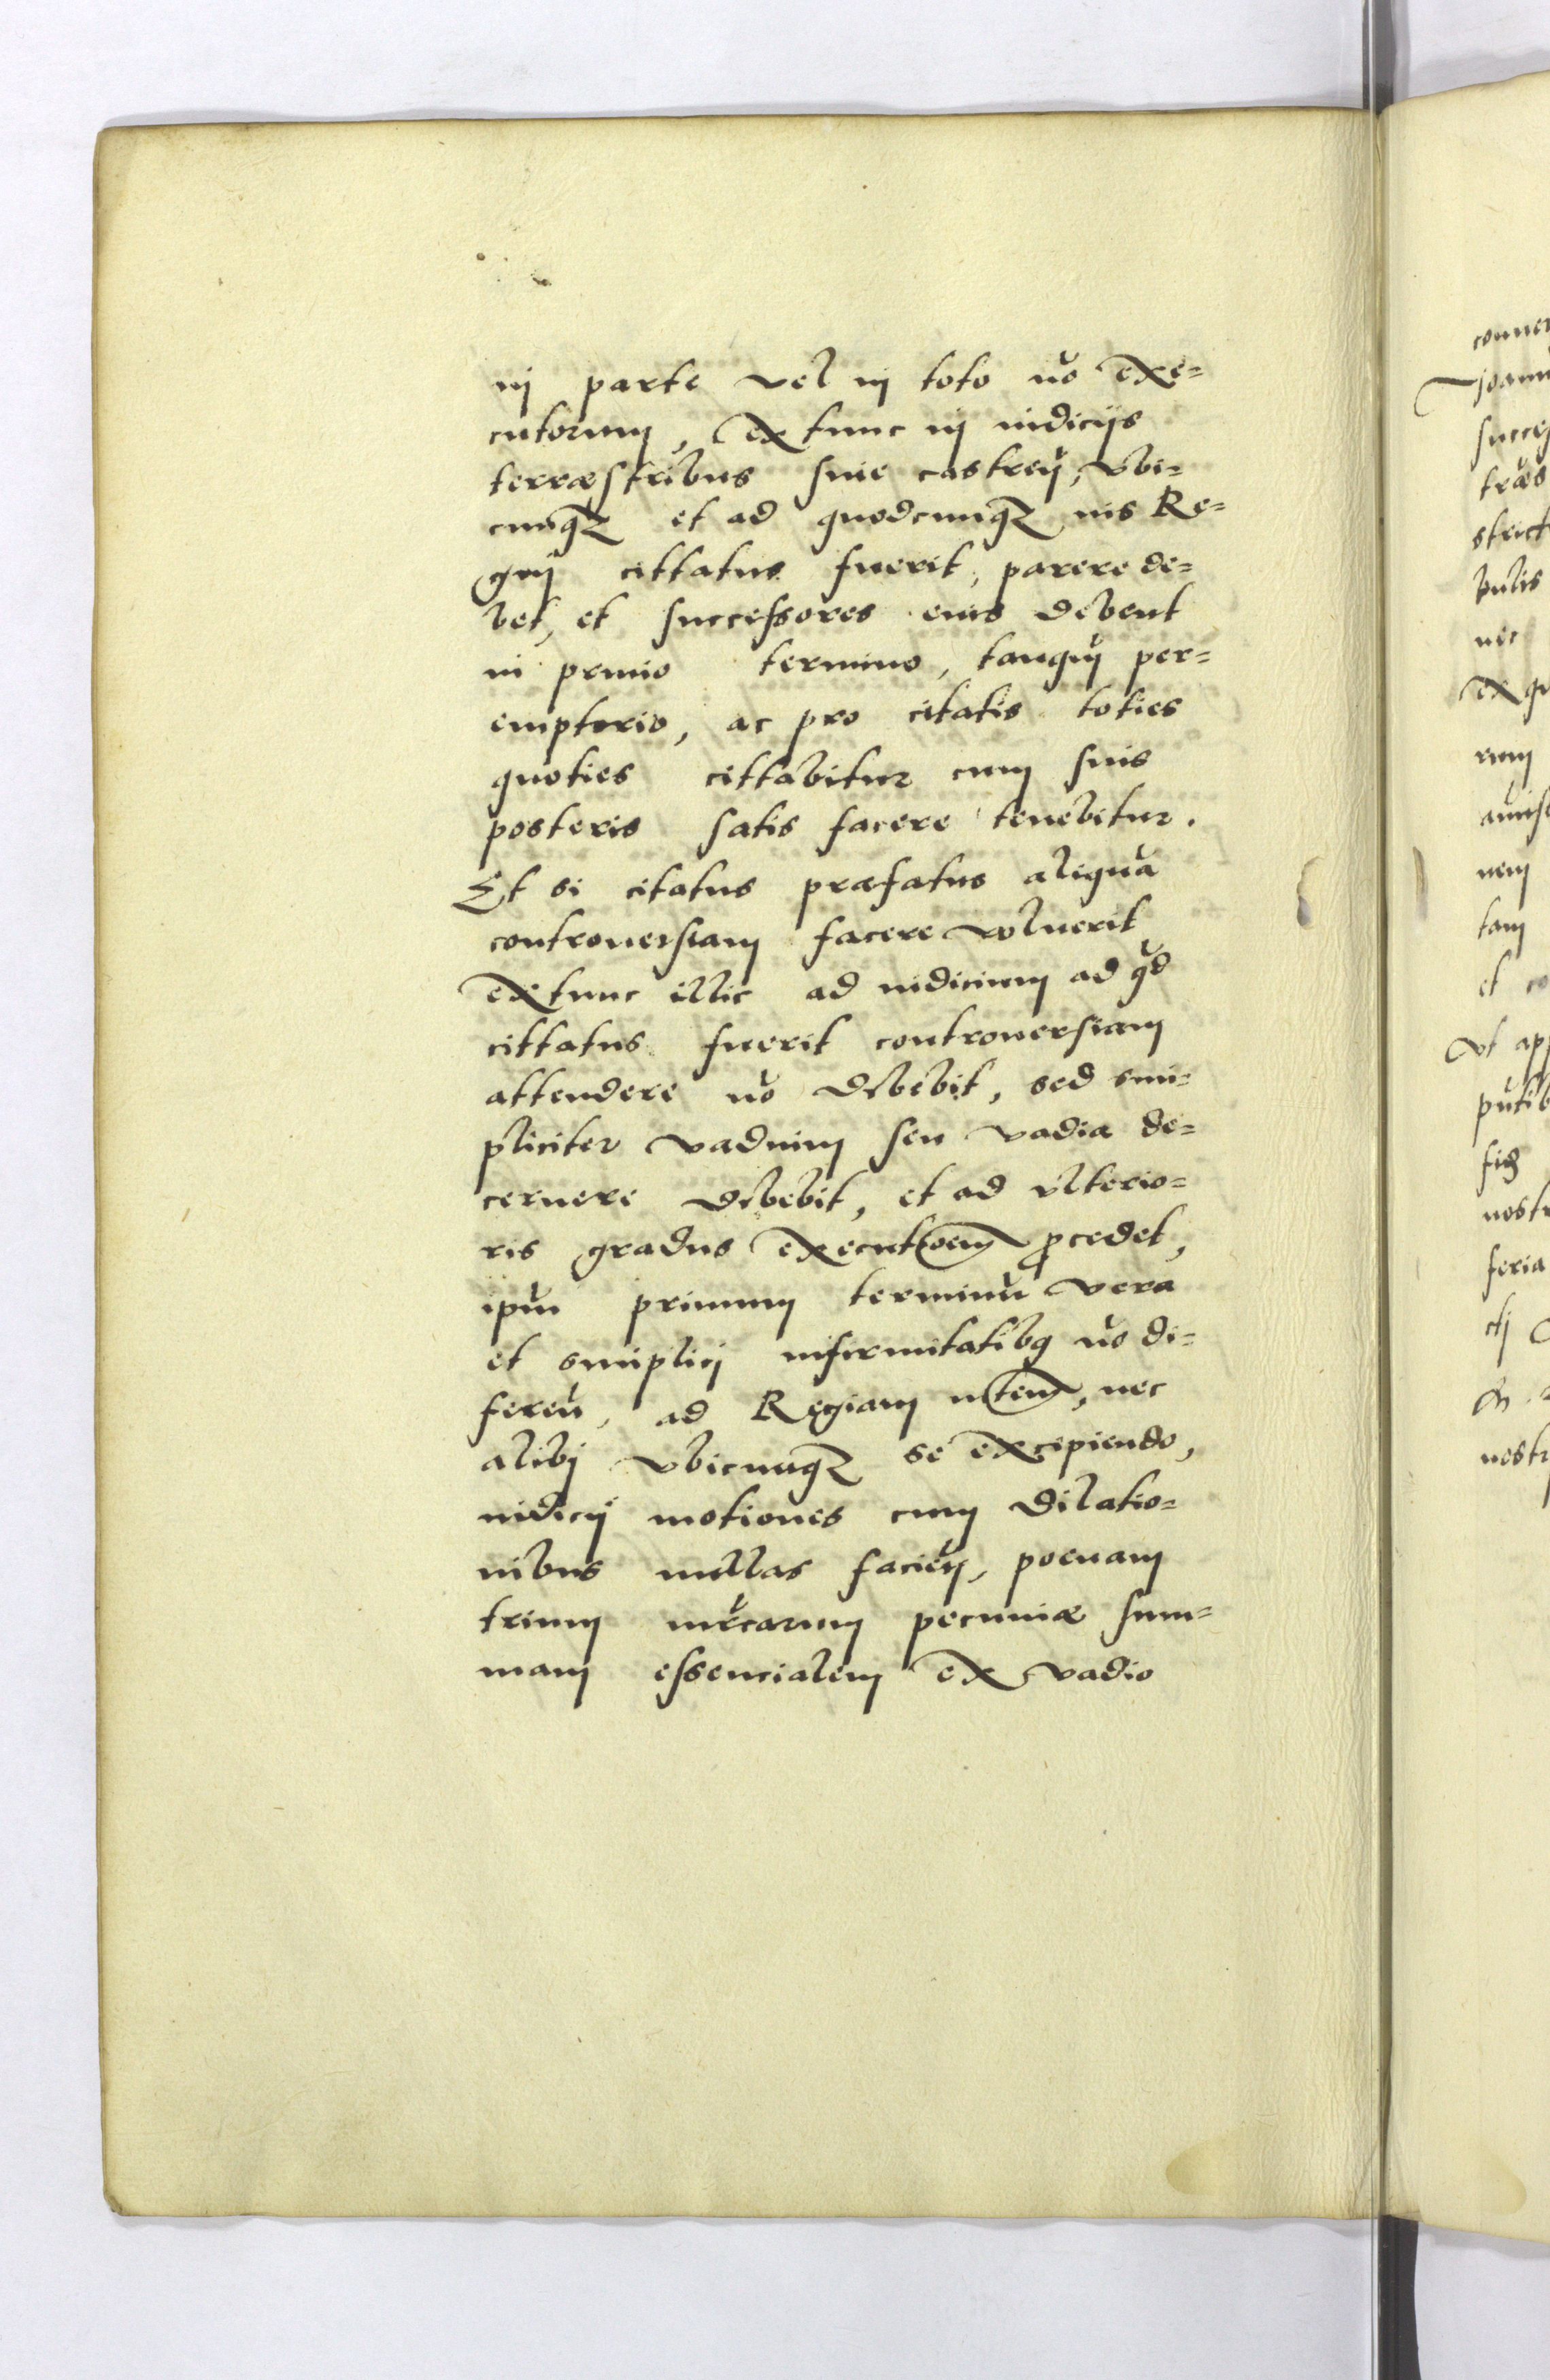 in parte vel in toto nō exe=
cutorum, ex tunc in iudicijs
terræstribus siue castreñ, vbi=
cunqz et ad quodcunqz ius Re=
gni cittatus fuerit, parere de=
bet, et successores eius debent
in primo termino, tanquā per=
emptorio, ac pro citatis toties
quoties cittabitur cum suis
posteris satis facere tenebitur.
Et si citatus præfatus aliquā
controuersiam facere voluerit
ex tunc illic ad iudicium ad qd̄
cittatus fuerit controuersiam
attendere nō debebit, sed sim=
pliciter vadium seu vadia de=
cernere debebit, et ad vlterio=
ris gradus executioem procedet,
ipm̄ primum terminū vera
et simplicj infirmitatibg nō di=
fereñ, ad Regiam mtem, nec
alibj vbicunqz se excipiendo,
iudicij motiones cum dilatio=
nibus nullas facieñ, poenam
trium mr̄carum pecuniæ sum=
mam essencialem ex vadio
conuer
Joann
succes
træs
strict
bulis
nec
ex qu
rum
nem
tam
et co
vt app
nostr
feria
nostr